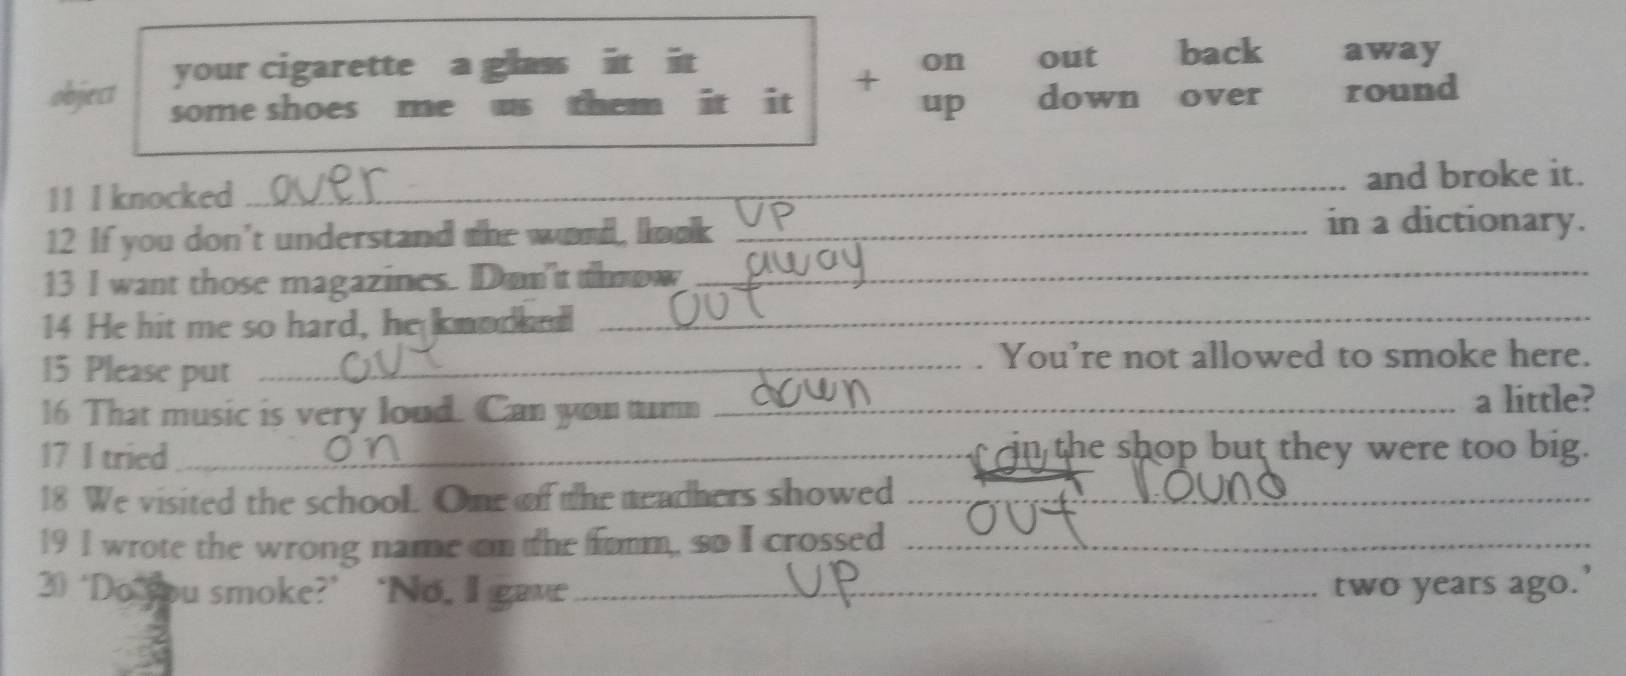 your cigarette a glass it it
object
some shoes me us them it it
+
on out back away
up down over round
11 I knocked over and broke it.
12 If you don't understand the word, look up in a dictionary.
13 I want those magazines. Don't throw away
14 He hit me so hard, he knocked out
15 Please put out . You're not allowed to smoke here.
16 That music is very loud. Can you turn down a little?
17 I tried on in the shop but they were too big.
18 We visited the school. One of the teachers showed round
19 I wrote the wrong name on the form, so I crossed out
20 'Do you smoke?' 'No, I gave up two years ago.'